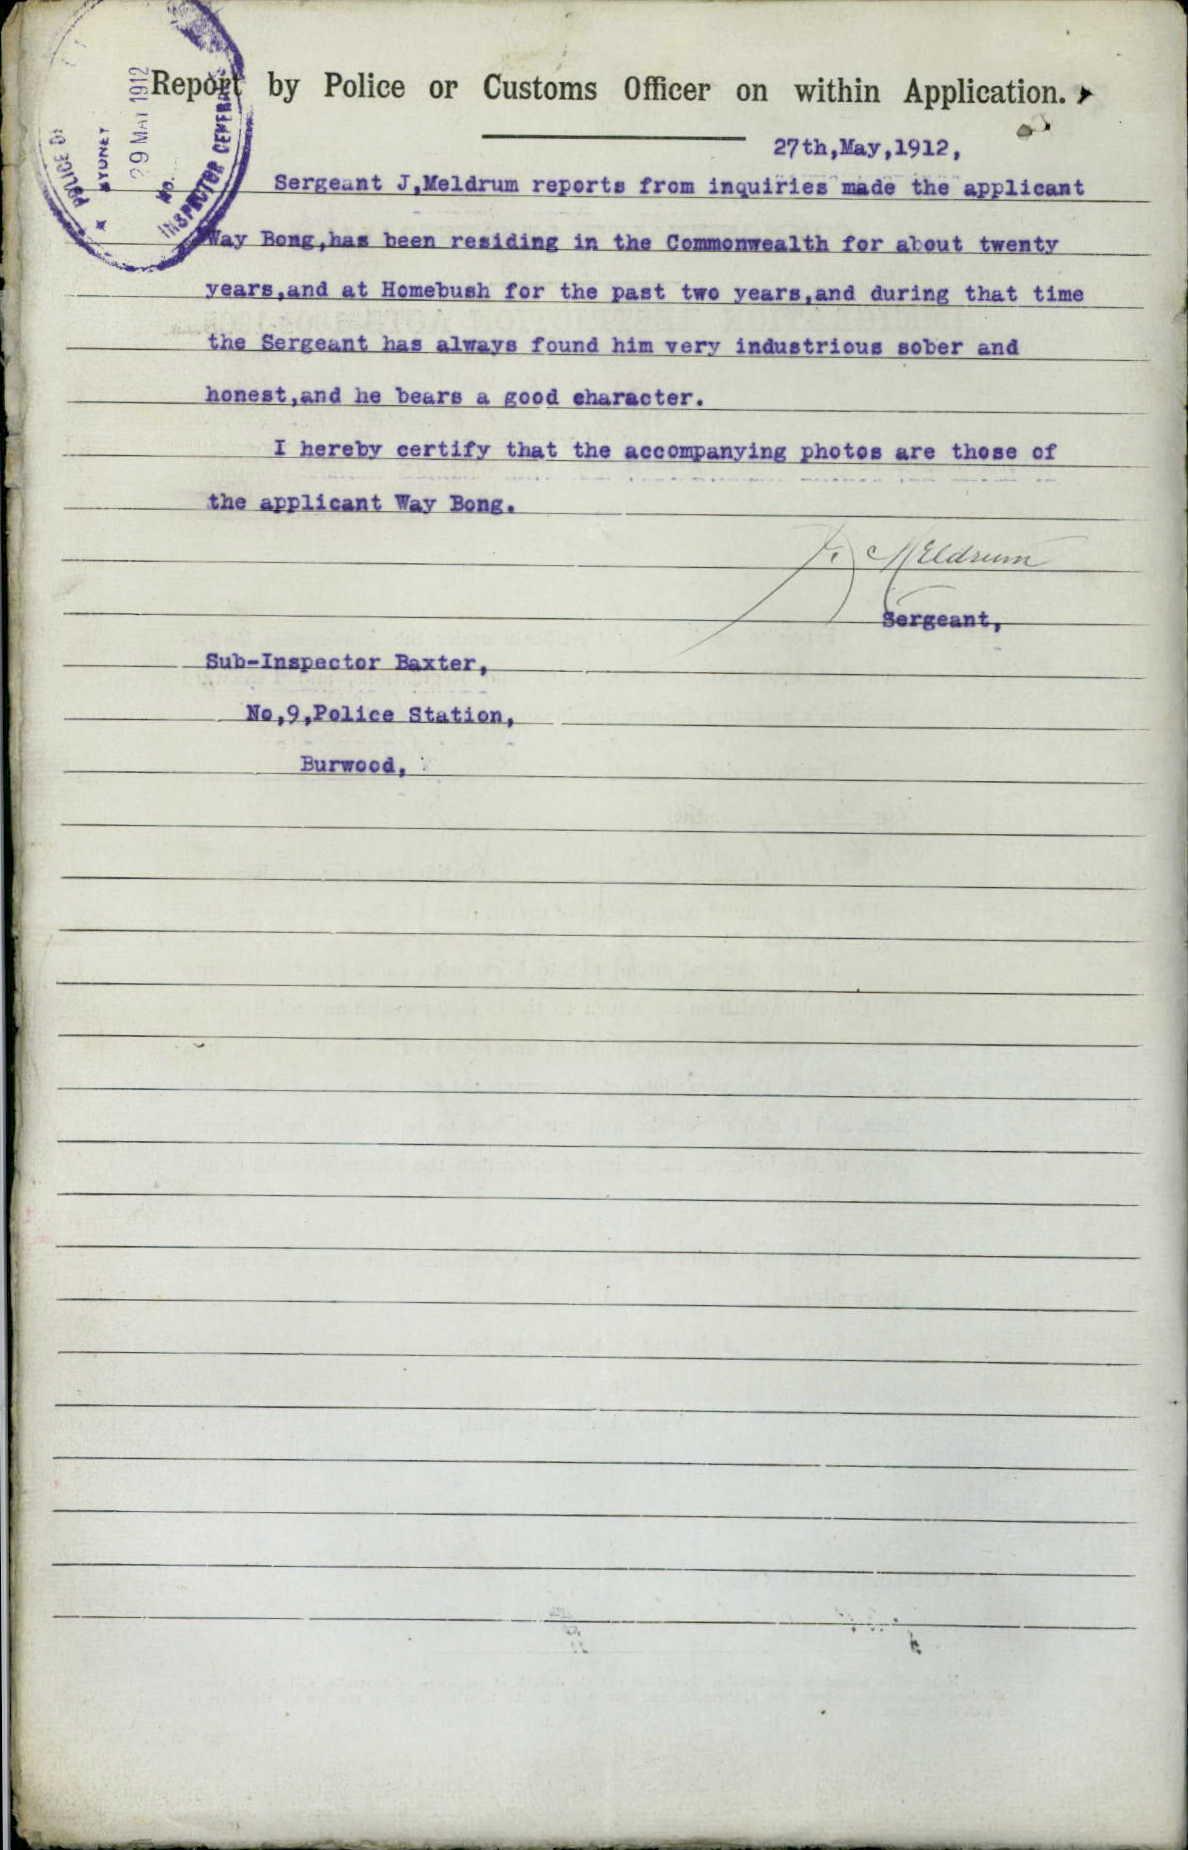 POLICE
SYDNEY
29 MAY 1912
No.
INSPECTOR GENERAL
Report by Police or Customs Officer on within Application.
27th,May,1912,
Sergeant J,Meldrum reports from inquiries made the applicant
Way Bong,has been residing in the Commonwealth for about twenty
years,and at Homebush for the past two years,and during that time
the Sergeant has always found him very industrious sober and
honest,and he bears a good character.
I hereby certify that the accompanying photos are those of
the applicant Way Bong.
J. Meldrum
Sergeant,
Sub-Inspector Baxter,
No,9,Police Station,
Burwood,